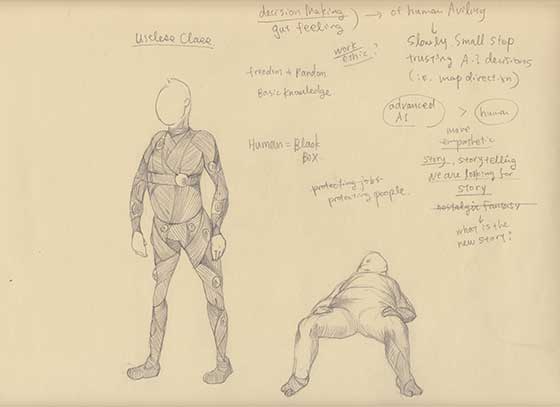 Useless Class
decision making
gus feeling
→ of human Avility
work
ethic?
Slowly small stop
trusting A.I decisions
(i.e. map direction)
freedom + Random
Basic knowledge.
advanced
AI
>
human
more
empathetic
Human = Black
Box.
story, storytelling
we are looking for
story
protecting jobs-
protecting people.
nostalgic fantasy
what is the
new story?